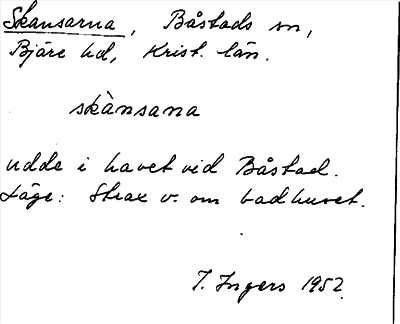 Skansarna, Båstads sn,
Bjäre hd, Krist. län.
skànsana
udde i havet vid Båstad.
Läge: Strax v. om badhuset.
I. Ingers 1952.